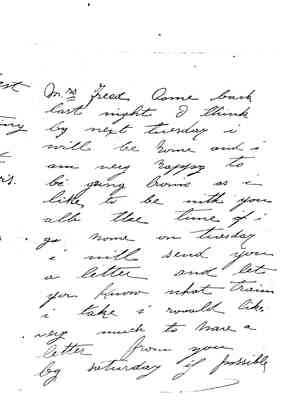 Mrs Freed Come back
last night I think
by next tuesday i
will be home and i
am very happy to
be going home as i
like to be with you
all the time if i
go home on tuesday
i will send you
a letter and let
you know what train
i take i would like
very much to have a
letter from you
by saturday if possible